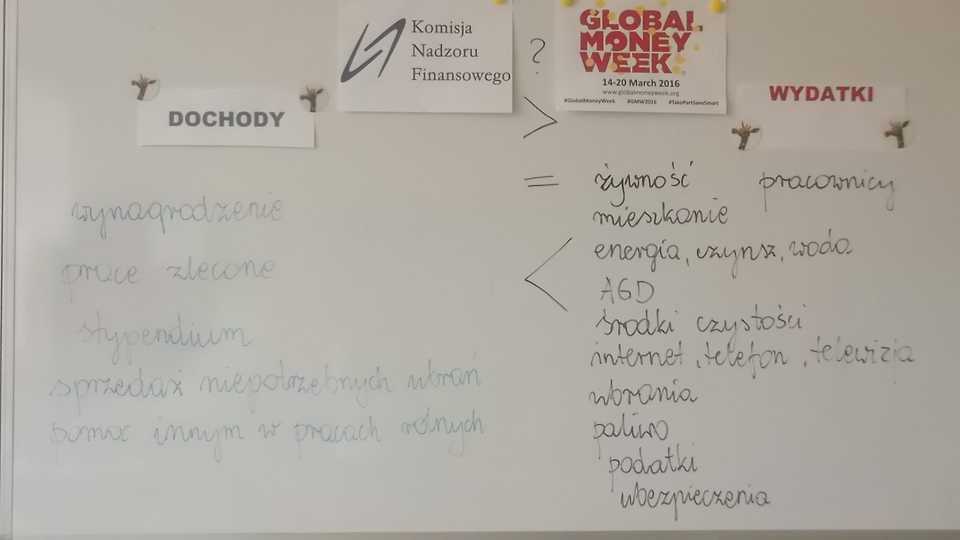 Komisja
Nadzoru
Finansowego
?
GLOBAL
MONEY
WEEK
14-20 March 2016
www.globalmoneyweek.org
#GlobalMoneyWeek #GMW2016 #TakePartSaveSmart
DOCHODY
>
WYDATKI
=
<
wynagrodzenie
prace zlecone
stypendium
sprzedaż niepotrzebnych ubrań
pomoc innym w pracach rolnych
żywność pracownicy
mieszkanie
energia, czynsz, woda
AGD
środki czystości
internet, telefon, telewizja
ubrania
paliwo
podatki
ubezpieczenia